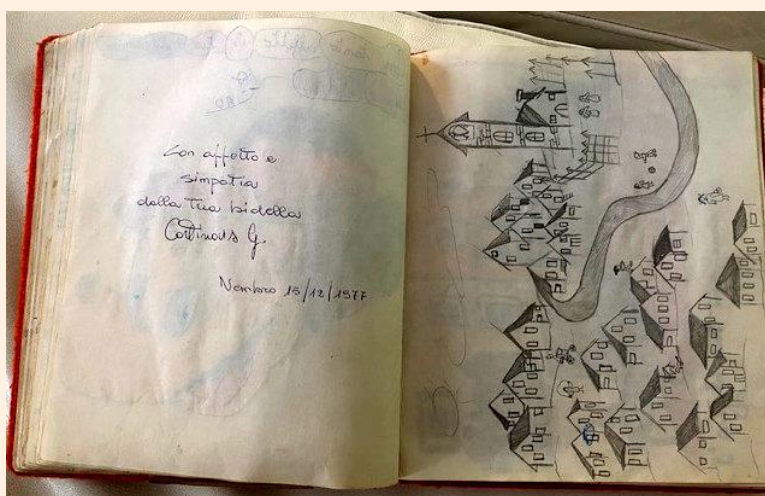 Con affetto e
simpatia
dalla Tua bidella
G.
Nembro 15/12/1977